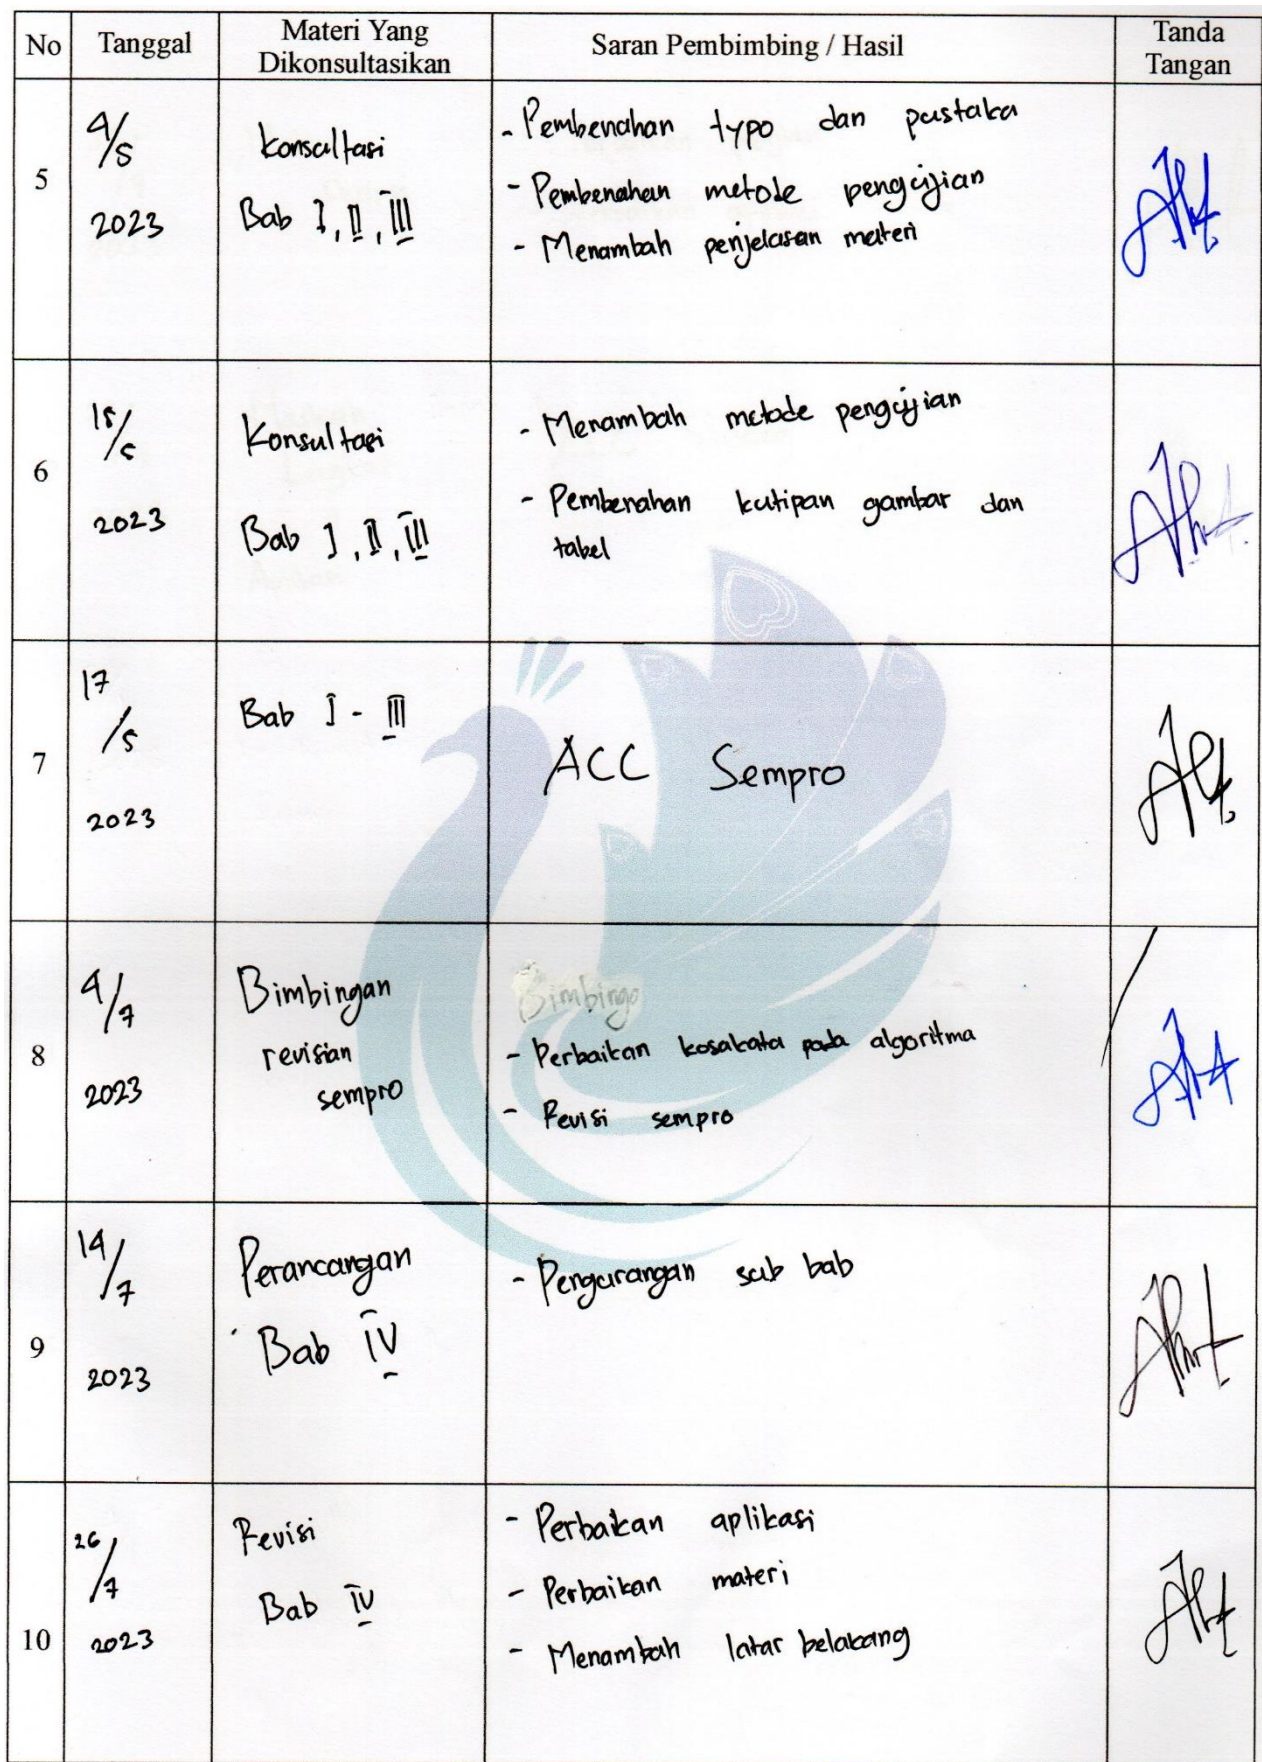 No Tanggal Materi Yang Dikonsultasikan Saran Pembimbing / Hasil Tanda Tangan
5
4/5
2023
Konsultasi
Bab I, II, III
- Pembenahan typo dan pustaka
- Pembenahan metode pengujian
- Menambah penjelasan materi
6
2023
Konsultasi
Bab I, II, III
- Menambah metode pengujian
- Pembenahan kutipan gambar dan
tabel
7
17
/5
2023
Bab I - III
ACC Sempro
8
4/7
2023
Bimbingan
revisian
sempro
Bimbingo
- Perbaikan kosakata pada algoritma
- Revisi sempro
9
14/7
2023
Perancangan
Bab IV
- Pengurangan sub bab
10
26/7
2023
Revisi
Bab IV
- Perbaikan aplikasi
- Perbaikan materi
- Menambah latar belakang